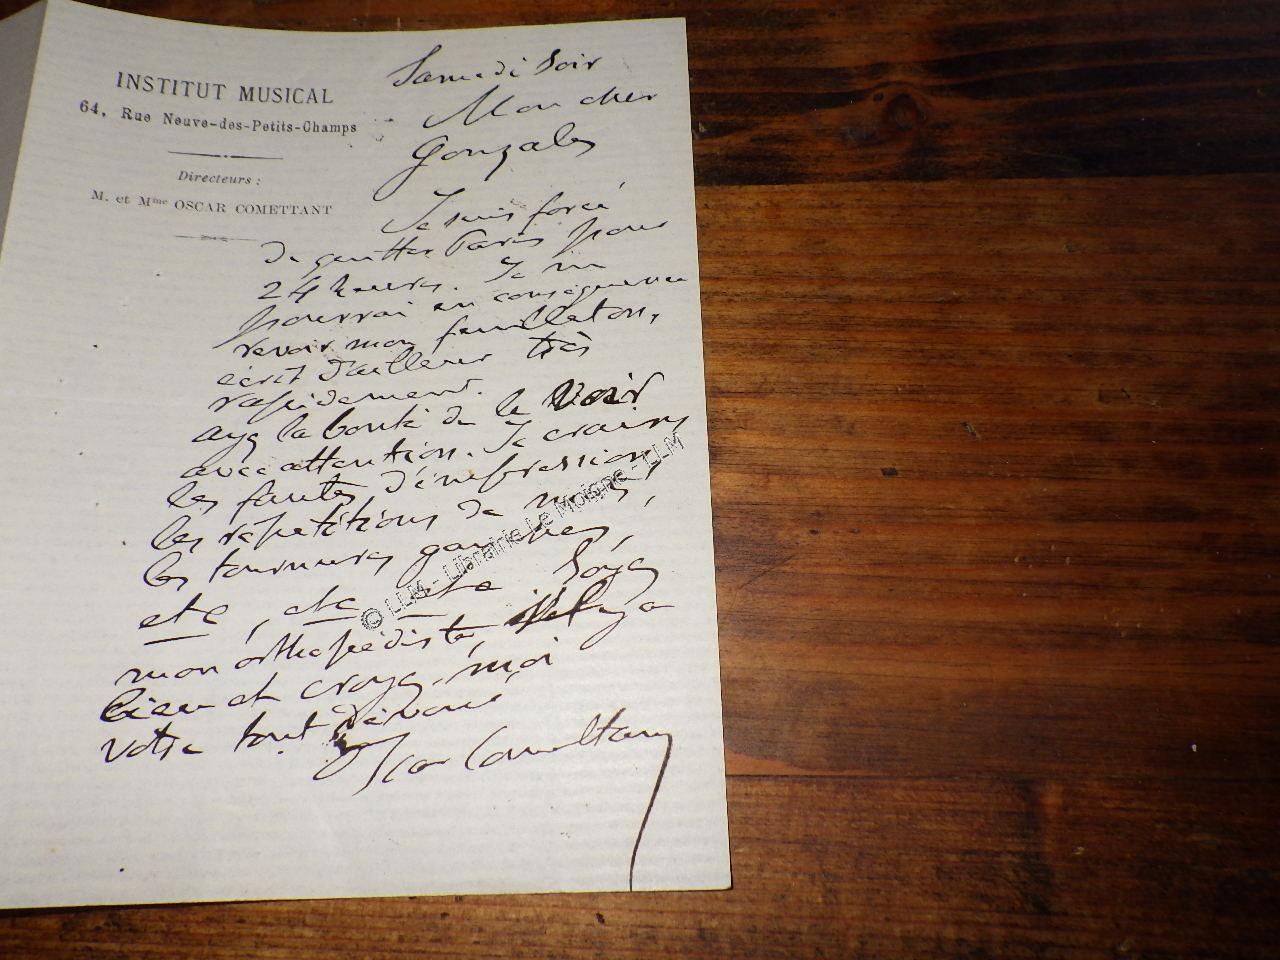 INSTITUT MUSICAL
64, Rue Neuve-des-Petits-Champs
Directeurs :
M. et Mme OSCAR COMETTANT
Samedi soir
Mon cher
Gonzales
Je suis forcé
de quitter Paris pour
24 heures. Je ne
pourrai en conséquence
revoir mon feuilleton,
écrit d'ailleur très
rapidement.
ayez la bonté de le voir
avec attention. Je crains
les fautes d'impression,
les répétitions de mots,
les tournures gauches,
etc, etc etc Soyez
mon orthopédiste,
bien et croyez-moi
votre tout dévoué,
Oscar Comettant
© LLM - Librairie Le Moigne - LLM